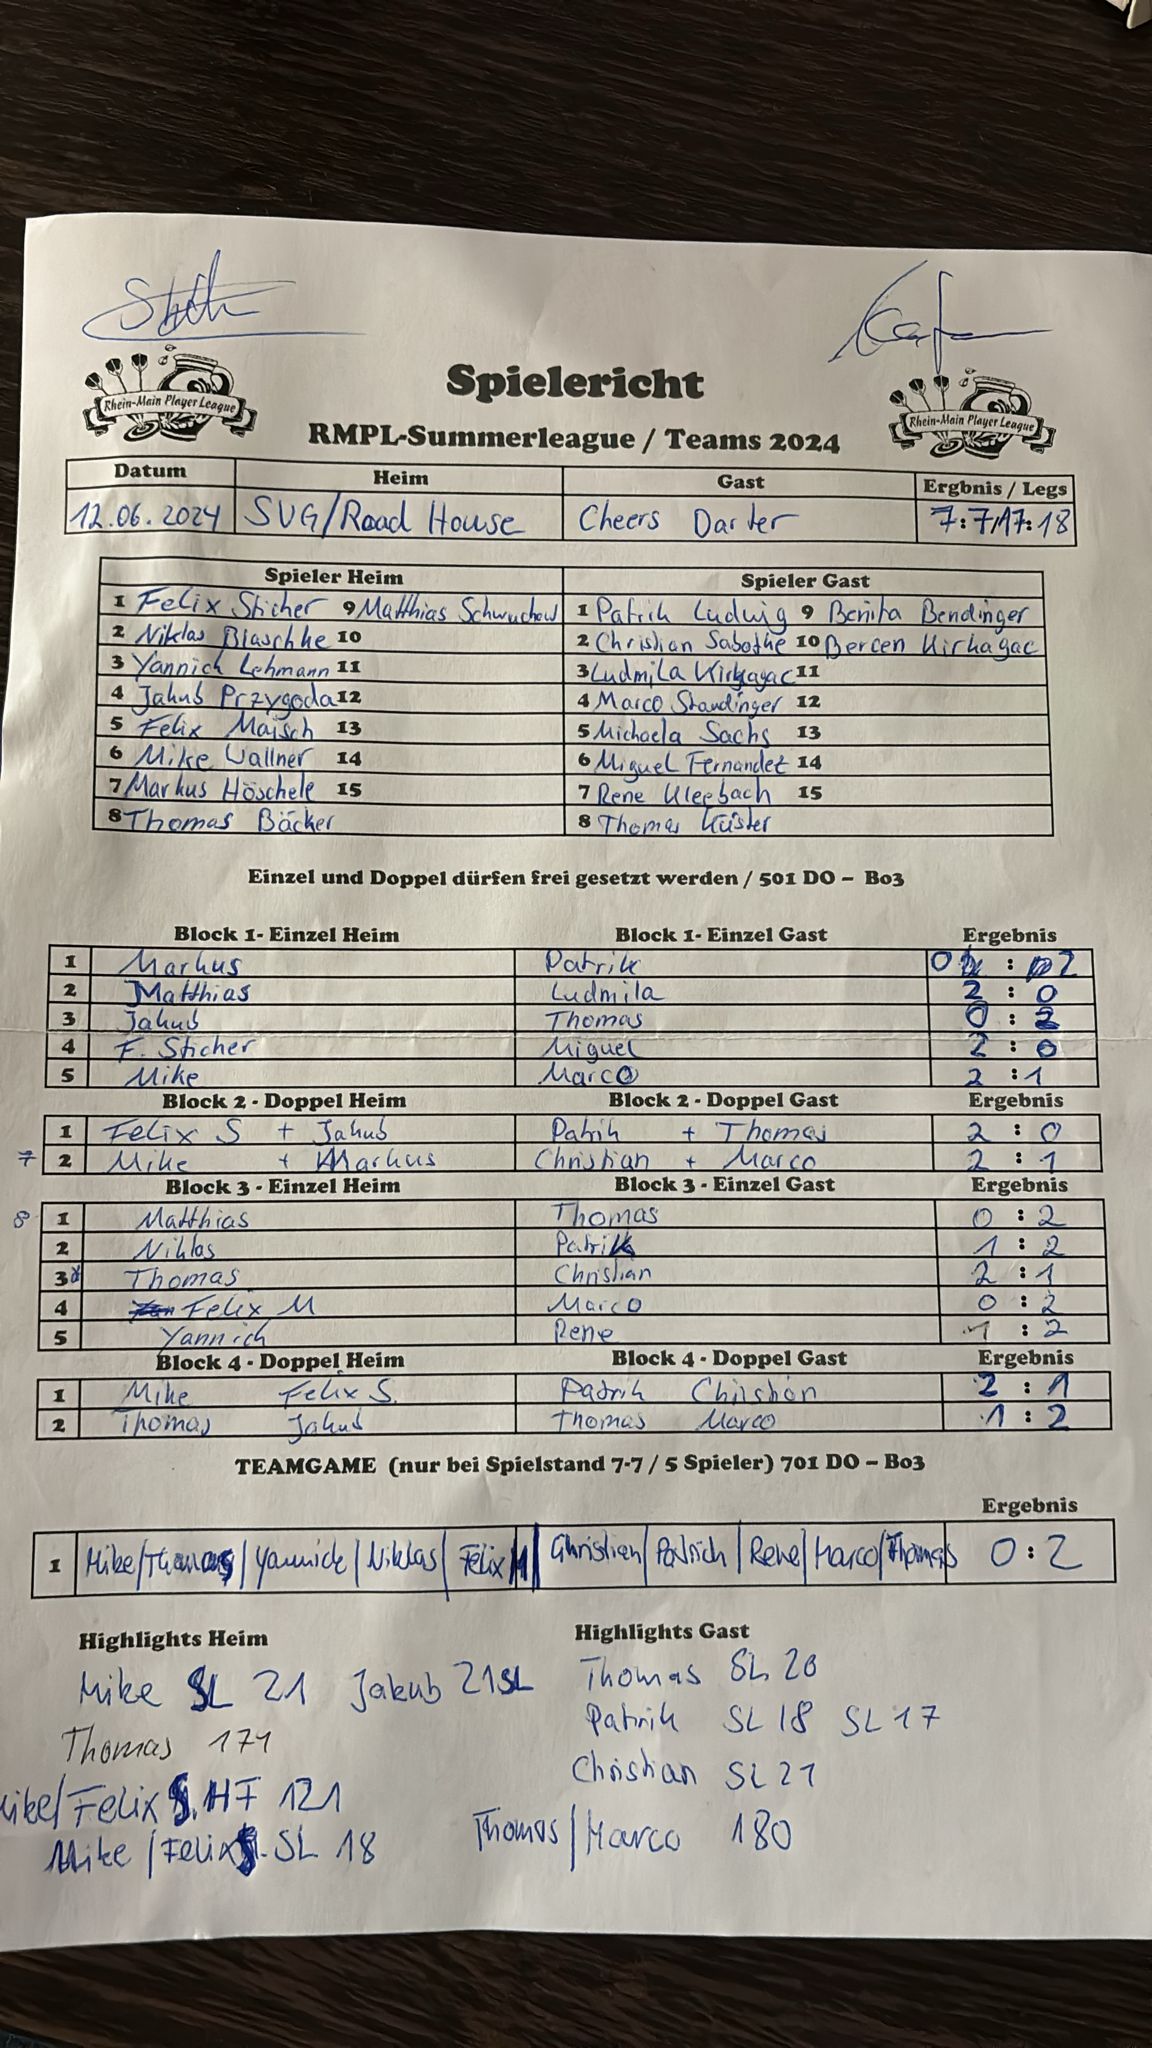 Rhein-Main Player League
Spielericht
Rhein-Main Player League
RMPL-Summerleague / Teams 2024
Datum Heim Gast Ergbnis / Legs
12.06.2024 SVG/Road House Cheers Darter 7:7/17:18
Spieler Heim Spieler Gast
1 Felix Sticher 9 Matthias Schwuchow 1 Patrik Ludwig 9 Benita Bendinger
2 Niklas Blaschke 10 2 Christian Sabothe 10 Bercen Kirkagac
3 Yannick Lehmann 11 3 Ludmila Kirkagac 11
4 Jakub Przygoda 12 4 Marco Standinger 12
5 Felix Maisch 13 5 Michaela Sachs 13
6 Mike Wallner 14 6 Miguel Fernandez 14
7 Markus Höschele 15 7 Rene Kleebach 15
8 Thomas Bäcker 8 Thomas Küster
Einzel und Doppel dürfen frei gesetzt werden / 501 DO – Bo3
Block 1- Einzel Heim Block 1- Einzel Gast Ergebnis
1 Markus Patrik 0 : 2
2 Matthias Ludmila 2 : 0
3 Jakub Thomas 0 : 2
4 F. Sticher Miguel 2 : 0
5 Mike Marco 2 : 1
Block 2 - Doppel Heim Block 2 - Doppel Gast Ergebnis
1 Felix S + Jakub Patrik + Thomas 2 : 0
7 2 Mike + Markus Christian + Marco 2 : 1
Block 3 - Einzel Heim Block 3 - Einzel Gast Ergebnis
8 1 Matthias Thomas 0 : 2
2 Niklas Patrik 1 : 2
3 Thomas Christian 2 : 1
4 Felix M Marco 0 : 2
5 Yannich Rene 1 : 2
Block 4 - Doppel Heim Block 4 - Doppel Gast Ergebnis
1 Mike Felix S. Patrik Christian 2 : 1
2 Thomas Jakub Thomas Marco 1 : 2
TEAMGAME (nur bei Spielstand 7-7 / 5 Spieler) 701 DO – Bo3
Ergebnis
1 Mike/Thomas/Yannick/Niklas/Felix M Christian/Patrich/Rene/Marco/Thomas 0:2
Highlights Heim Highlights Gast
Mike SL 21 Jakub 21 SL Thomas SL 20
Thomas 171 Patrik SL 18 SL 17
Mike/Felix S. HF 121 Christian SL 21
Mike/Felix S. SL 18 Thomas/Marco 180